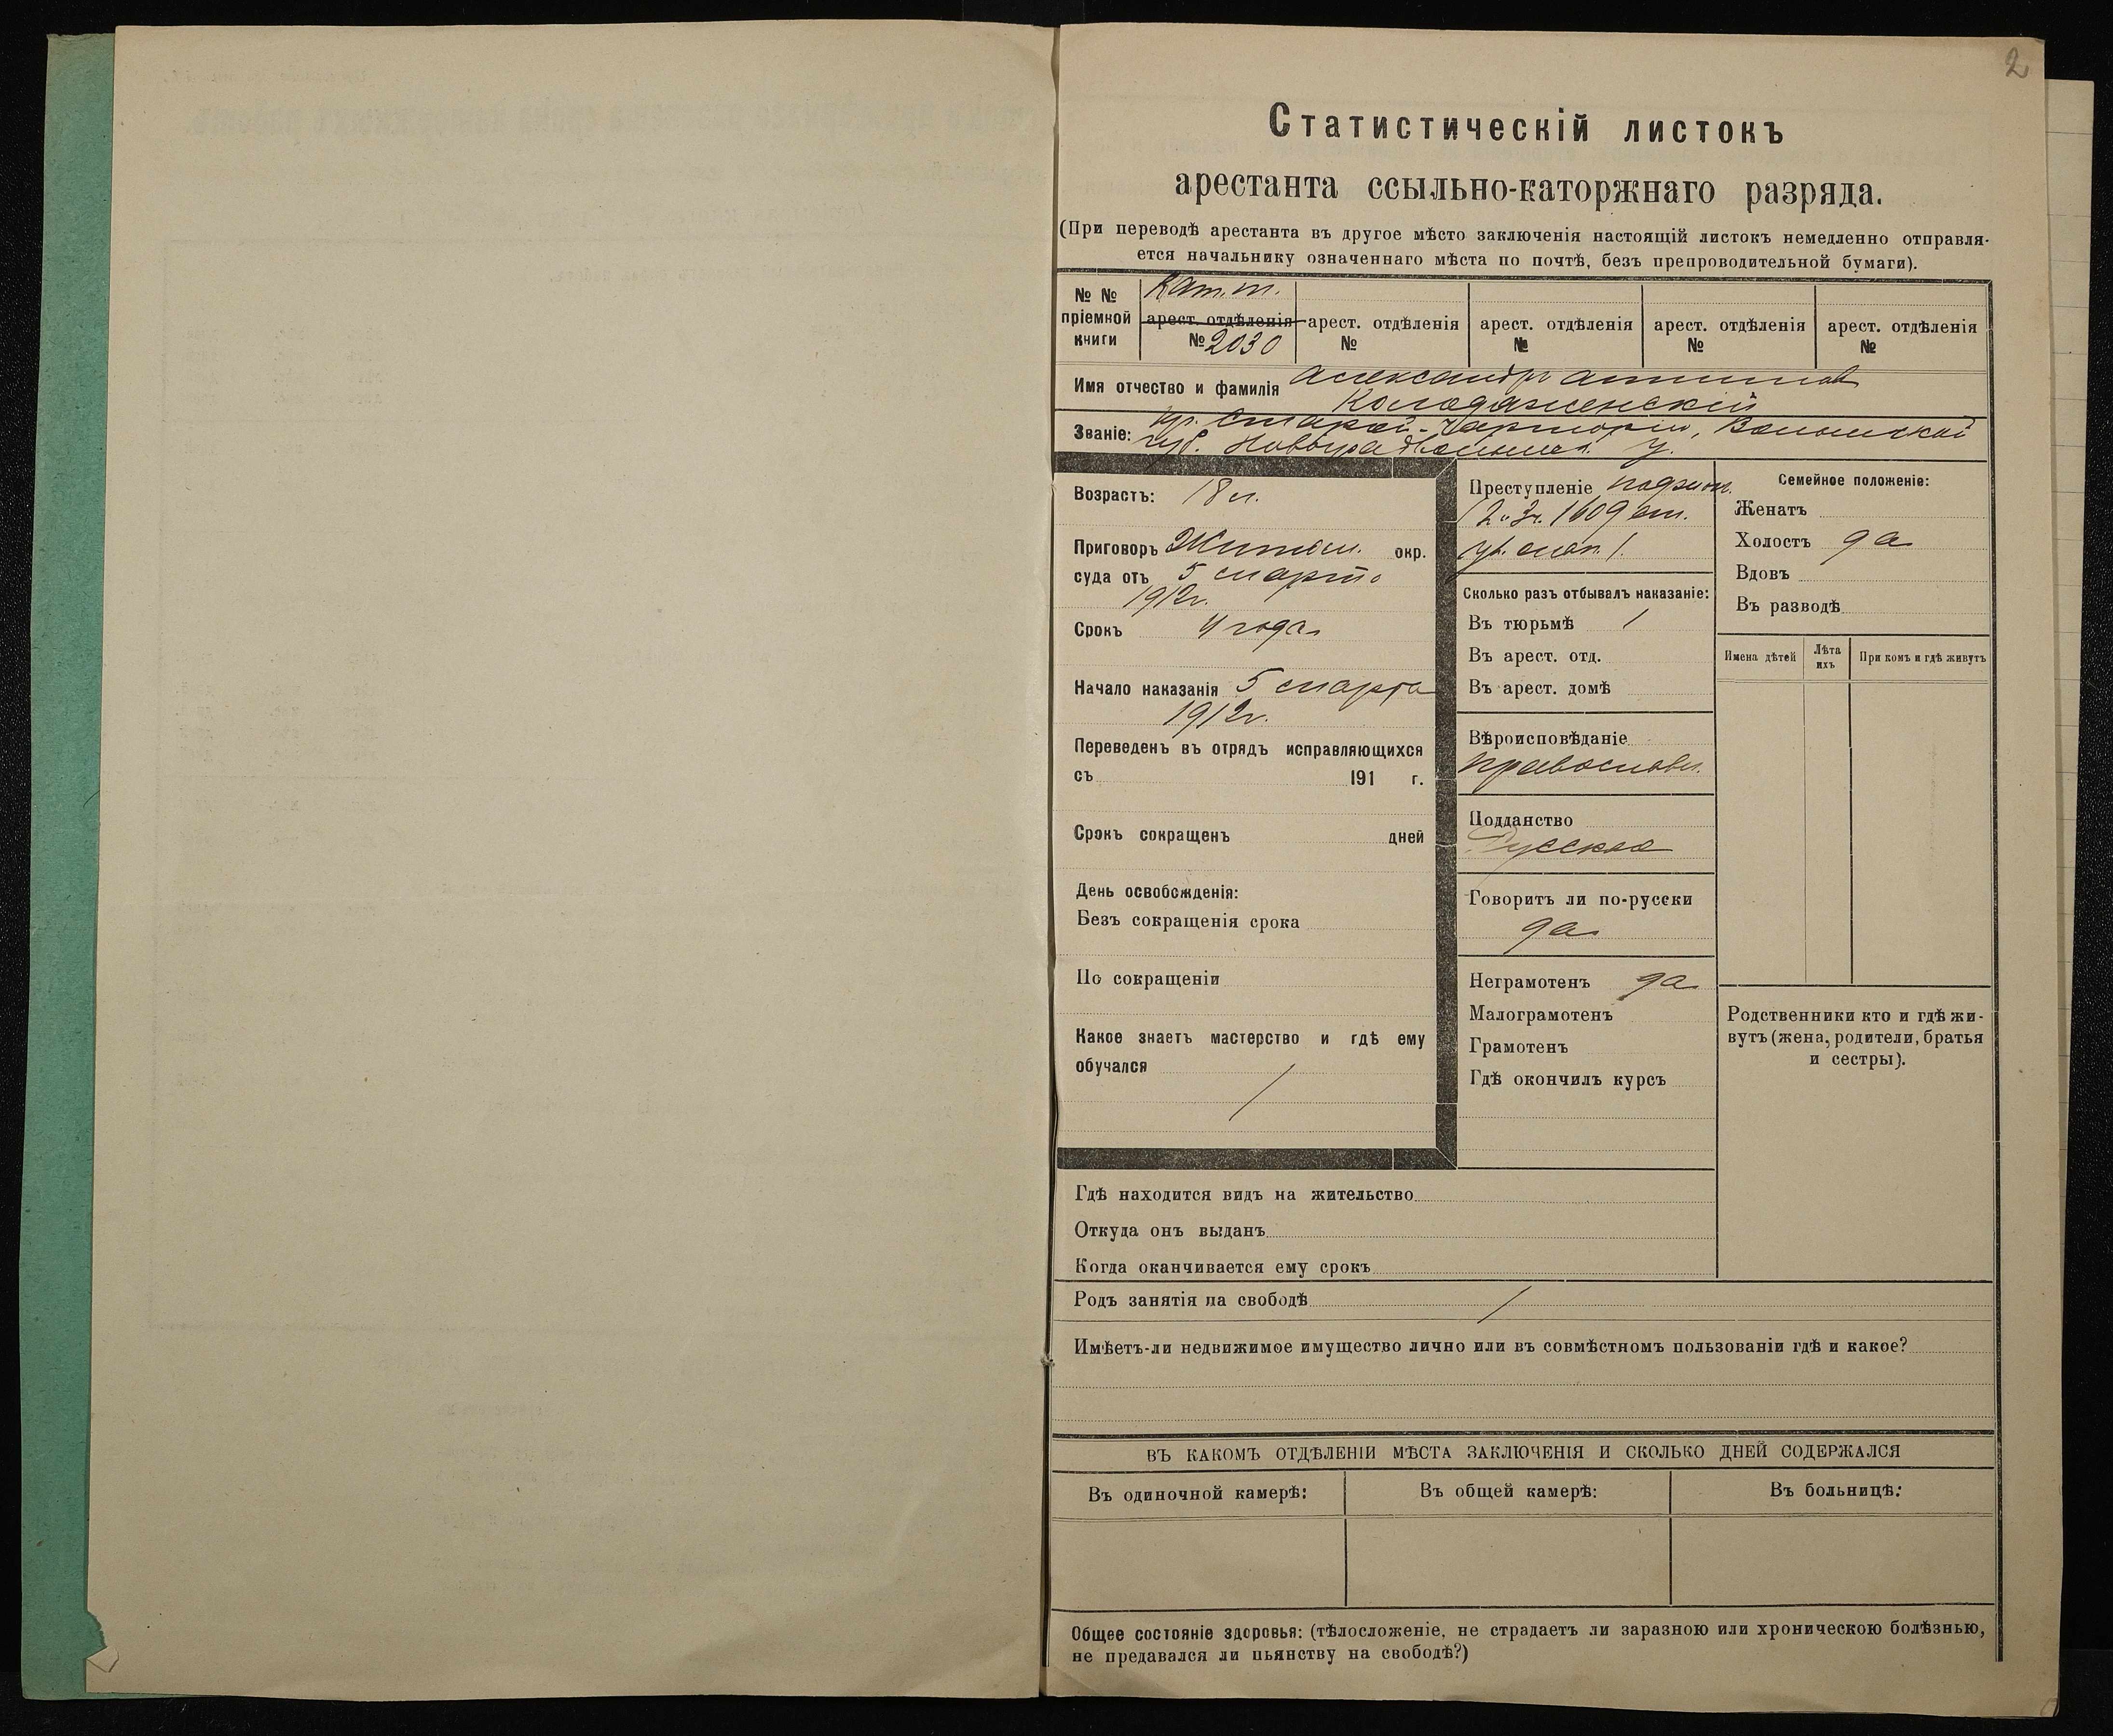 2
Статистическій листокъ
арестанта ссыльно-каторжнаго разряда.
(При переводѣ арестанта въ другое мѣсто заключенія настоящій листокъ немедленно отправля-
ется начальнику означеннаго мѣста по почтѣ, безъ препроводительной бумаги).
№ № пріемной книги
Кат. т.
арест. отдѣленія
№ 2030
арест. отдѣленія
№
арест. отдѣленія
№
арест. отдѣленія
№
арест. отдѣленія
№
Имя отчество и фамилія Александръ
Колодяженскій
Званіе: кр. Старой-Чарторіи, Волынской
губ. Новоградволынск. у.
Возрастъ: 18 л.
Приговоръ Житом. окр.
суда отъ 5 марта
1912г.
Срокъ 4 года
Начало наказанія 5 марта
1912г.
Переведенъ въ отрядъ исправляющихся
съ 191 г.
Срокъ сокращенъ дней
День освобожденія:
Безъ сокращенія срока
По сокращеніи
Какое знаетъ мастерство и гдѣ ему
обучался /
Преступленіе поджог.
1609 ст.
Сколько разъ отбывалъ наказаніе:
Въ тюрьмѣ 1
Въ арест. отд.
Въ арест. домѣ
Вѣроисповѣданіе
православн.
Подданство
Русское
Говоритъ ли по-русски
да
Неграмотенъ да
Малограмотенъ
Грамотенъ
Гдѣ окончилъ курсъ
Семейное положеніе:
Женатъ
Холостъ да
Вдовъ
Въ разводѣ
Имена дѣтей
Лѣта ихъ
При комъ и гдѣ живутъ
Родственники кто и гдѣ жи-
вутъ (жена, родители, братья
и сестры).
Гдѣ находится видъ на жительство
Откуда онъ выданъ
Когда оканчивается ему срокъ
Родъ занятія на свободѣ /
Имѣетъ-ли недвижимое имущество лично или въ совмѣстномъ пользованіи гдѣ и какое?
ВЪ КАКОМЪ ОТДѢЛЕНІИ МѢСТА ЗАКЛЮЧЕНІЯ И СКОЛЬКО ДНЕЙ СОДЕРЖАЛСЯ
Въ одиночной камерѣ:
Въ общей камерѣ:
Въ больницѣ:
Общее состояніе здоровья: (тѣлосложеніе, не страдаетъ ли заразною или хроническою болѣзнью,
не предавался ли пьянству на свободѣ?)